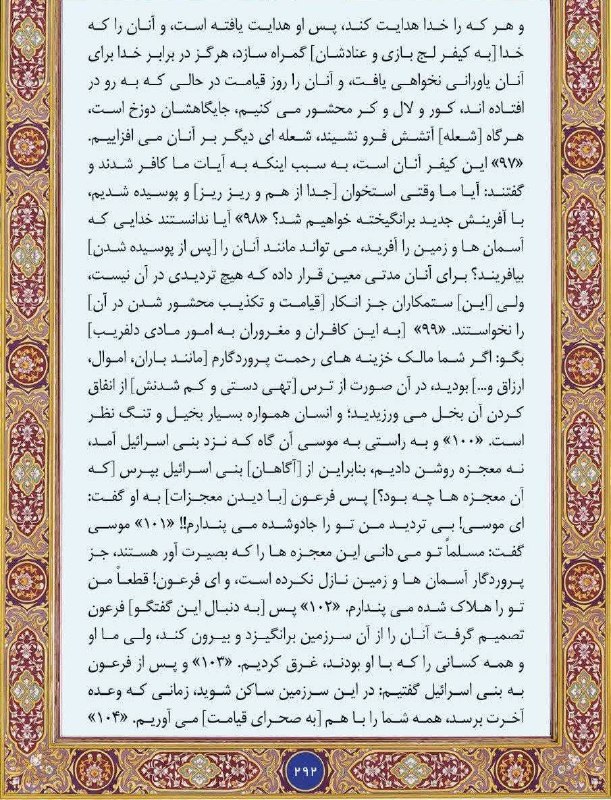 و هر که را خدا هدایت کند، پس او هدایت یافته است، و آنان را که
خدا [به کیفر لج بازی و عنادشان] گمراه سازد، هرگز در برابر خدا برای
آنان یاورانی نخواهی یافت، و آنان را روز قیامت در حالی که به رو در
افتاده اند، کور و لال و کر محشور می کنیم، جایگاهشان دوزخ است،
هرگاه [شعله] آتشش فرو نشیند، شعله ای دیگر بر آنان می افزاییم.
«۹۷» این کیفر آنان است، به سبب اینکه به آیات ما کافر شدند و
گفتند: آیا ما وقتی استخوان [جدا از هم و ریز ریز] و پوسیده شدیم،
با آفرینش جدید برانگیخته خواهیم شد؟ «۹۸» آیا ندانستند خدایی که
آسمان ها و زمین را آفرید، می تواند مانند آنان را [پس از پوسیده شدن]
بیافریند؟ برای آنان مدتی معین قرار داده که هیچ تردیدی در آن نیست،
ولی [این] ستمکاران جز انکار [قیامت و تکذیب محشور شدن در آن]
را نخواستند. «۹۹» [به این کافران و مغروران به امور مادی دلفریب]
بگو: اگر شما مالک خزینه های رحمت پروردگارم [مانند باران، اموال،
ارزاق و...] بودید، در آن صورت از ترس [تهی دستی و کم شدنش] از انفاق
کردن آن بخل می ورزیدید؛ و انسان همواره بسیار بخیل و تنگ نظر
است. «۱۰۰» و به راستی به موسی آن گاه که نزد بنی اسرائیل آمد،
نه معجزه روشن دادیم، بنابراین از [آگاهان] بنی اسرائیل بپرس [که
آن معجزه ها چه بود؟] پس فرعون [با دیدن معجزات] به او گفت:
ای موسی! بی تردید من تو را جادوشده می پندارم!! «۱۰۱» موسی
گفت: مسلماً تو می دانی این معجزه ها را که بصیرت آور هستند، جز
پروردگار آسمان ها و زمین نازل نکرده است، و ای فرعون! قطعاً من
تو را هلاک شده می پندارم. «۱۰۲» پس [به دنبال این گفتگو] فرعون
تصمیم گرفت آنان را از آن سرزمین برانگیزد و بیرون کند، ولی ما او
و همه کسانی را که با او بودند، غرق کردیم. «۱۰۳» و پس از فرعون
به بنی اسرائیل گفتیم: در این سرزمین ساکن شوید، زمانی که وعده
آخرت برسد، همه شما را با هم [به صحرای قیامت] می آوریم. «۱۰۴»
۲۹۲